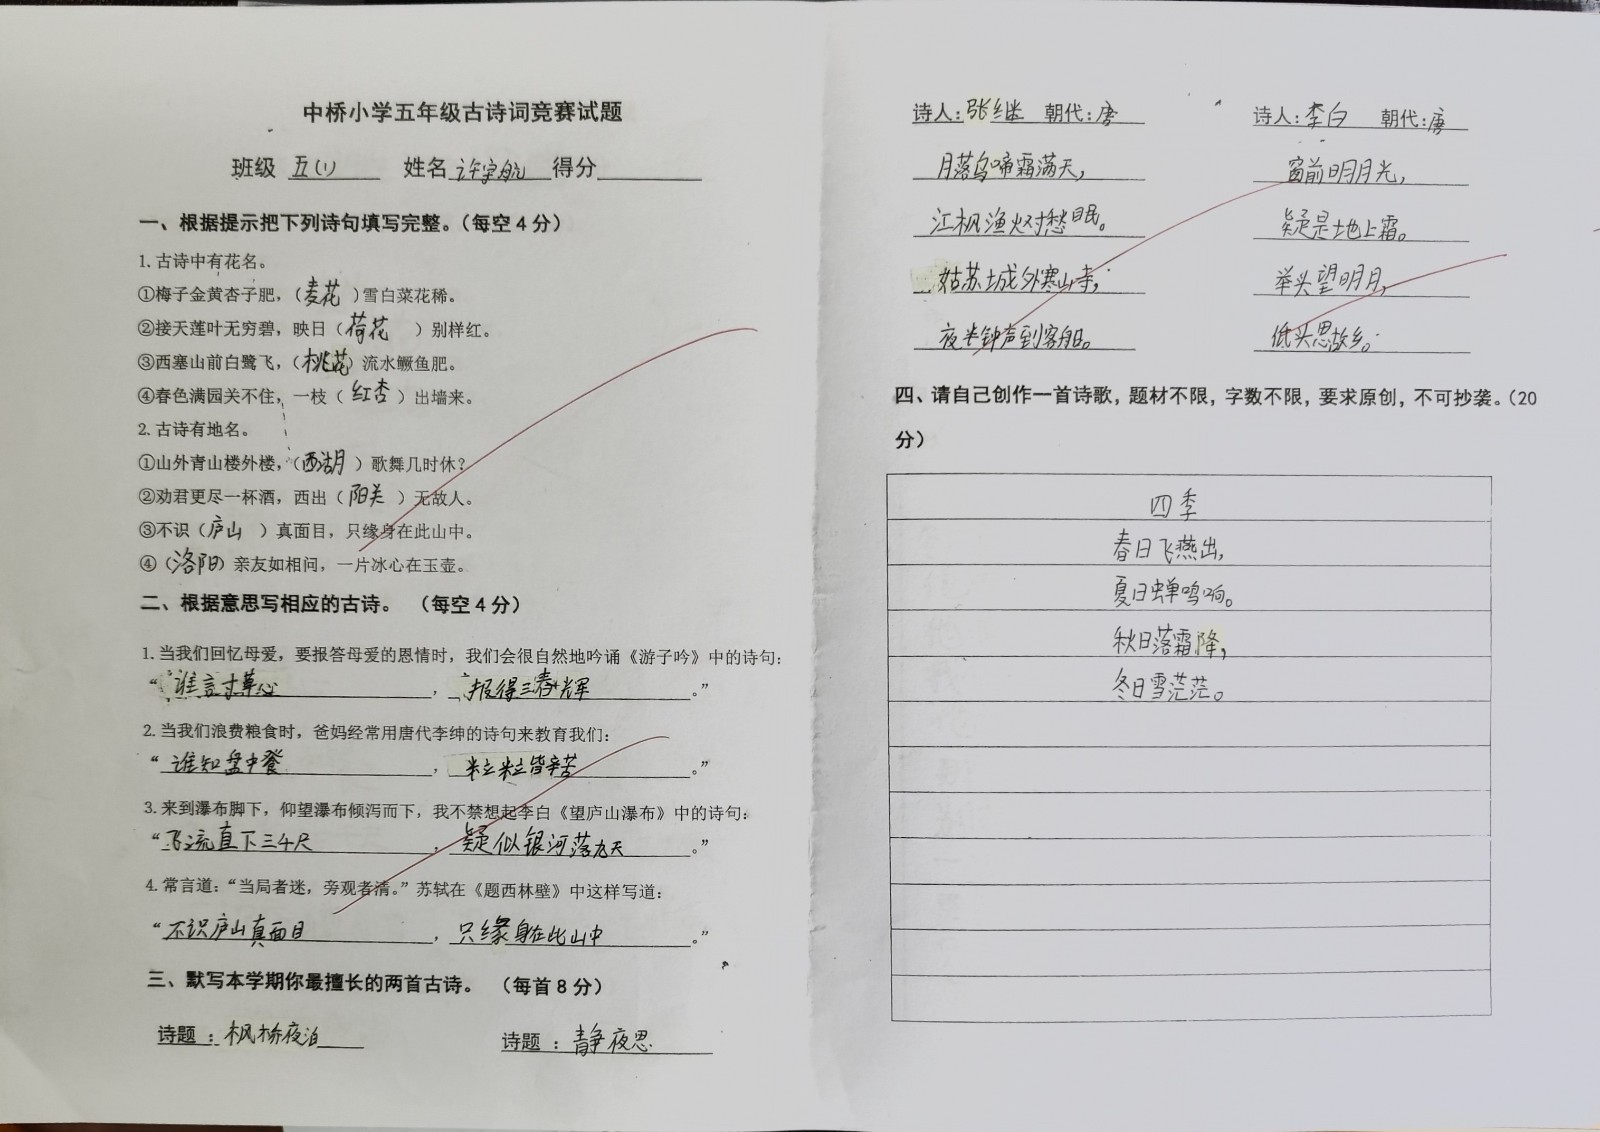 中桥小学五年级古诗词竞赛试题
班级 五(1) 姓名 许宇航 得分
一、根据提示把下列诗句填写完整。（每空4分）
1.古诗中有花名。
①梅子金黄杏子肥，（麦花）雪白菜花稀。
②接天莲叶无穷碧，映日（荷花）别样红。
③西塞山前白鹭飞，（桃花）流水鳜鱼肥。
④春色满园关不住，一枝（红杏）出墙来。
2.古诗有地名。
①山外青山楼外楼，（西湖）歌舞几时休？
②劝君更尽一杯酒，西出（阳关）无故人。
③不识（庐山）真面目，只缘身在此山中。
④（洛阳）亲友如相问，一片冰心在玉壶。
二、根据意思写相应的古诗。（每空4分）
1.当我们回忆母爱，要报答母爱的恩情时，我们会很自然地吟诵《游子吟》中的诗句：
“谁言寸草心，报得三春晖。”
2.当我们浪费粮食时，爸妈经常用唐代李绅的诗句来教育我们：
“谁知盘中餐，粒粒皆辛苦。”
3.来到瀑布脚下，仰望瀑布倾泻而下，我不禁想起李白《望庐山瀑布》中的诗句：
“飞流直下三千尺，疑似银河落九天。”
4.常言道：“当局者迷，旁观者清。”苏轼在《题西林壁》中这样写道：
“不识庐山真面目，只缘身在此山中。”
三、默写本学期你最擅长的两首古诗。（每首8分）
诗题：枫桥夜泊 诗题：静夜思
诗人：张继 朝代：唐
月落乌啼霜满天，
江枫渔火对愁眠。
姑苏城外寒山寺，
夜半钟声到客船。
诗人：李白 朝代：唐
窗前明月光，
疑是地上霜。
举头望明月，
低头思故乡。
四、请自己创作一首诗歌，题材不限，字数不限，要求原创，不可抄袭。（20
分）
四季
春日飞燕出，
夏日蝉鸣响。
秋日落霜降，
冬日雪茫茫。